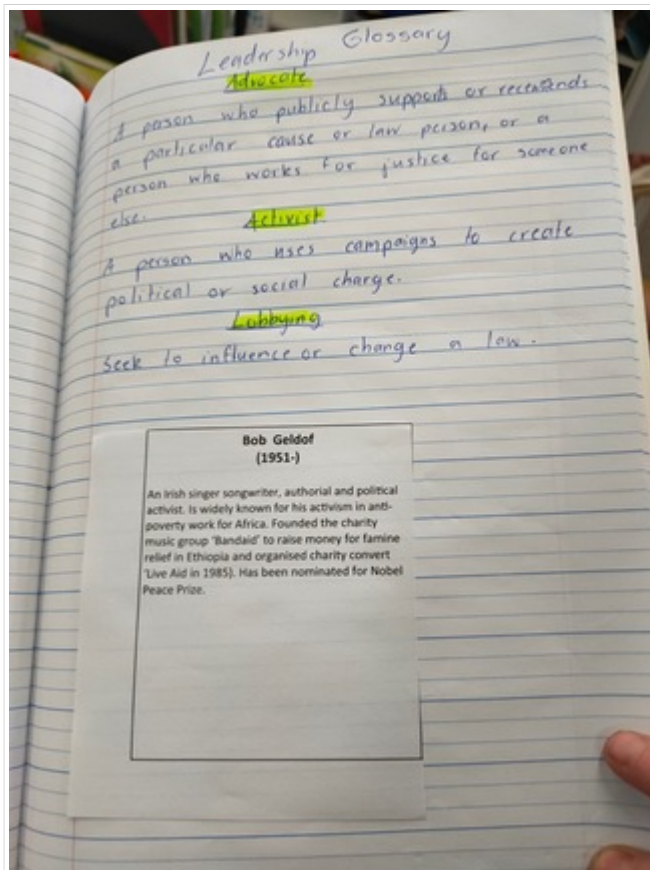 Leadership Glossary
Advocate
A person who publicly supports or
a particular cause or law person, or a
person who works for justice for someone
else.
Activist
A person who uses campaigns to create
political or social charge.
Lobbying
Seek to influence or change a law.
Bob Geldof
(1951-)
An Irish singer songwriter, authorial and political
activist. Is widely known for his activism in anti-
poverty work for Africa. Founded the charity
music group 'Bandaid' to raise money for famine
relief in Ethiopia and organised charity convert
'Live Aid in 1985). Has been nominated for Nobel
Peace Prize.